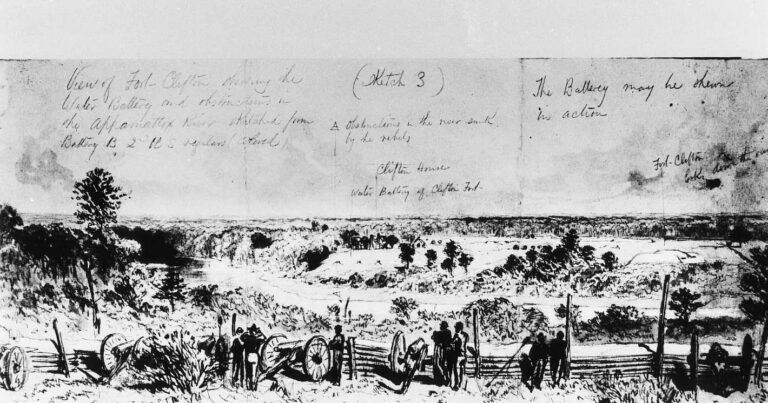 View of Fort Clifton showing the
Water Battery and obstructions in
the Appamattox River sketched from
Battery B 2d U S
(Sketch 3)
A Obstructions in the river sunk
by the rebels
Clifton House
Water Battery of Clifton Fort
The Battery may be shown
in action
Fort Clifton
looks down the